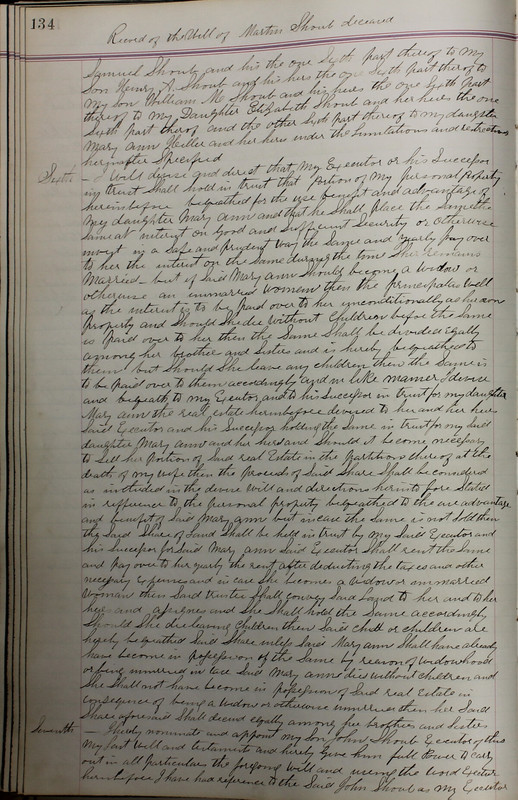 134
Record of the Will of Martin Shoub deceased
Samuel Shoub, and his the one Sixth part thereof to My
Son Henry A. Shoub and his heirs the one Sixth part thereof to
My Son William M. Shoub and his heirs the one Sixth part
thereof to my Daughter Elizabeth Shoub and her heirs the one
Sixth part therof and the other Sixth part thereof to my daughter
Mary Ann and her heirs under the Limitations and restrictions
hereinafter Specified
Sixth - I Will devise and direct that, My Executor or his Successor
in trust Shall hold in trust that portion of My personal property
hereinbefore bequeathed for the use benefit and advantage of
My daughter Mary Ann and that he Shall place the
Same at interest on Good and Sufficient Security or otherwise
invest in a Safe and prudent way the Same and yearly pay over
to her the interest on the Same during the time She remains
Married - but if Said Mary Ann Should become a widow or
otherwise an unmarried Woman then the principal as well
as the interest is to be paid over to her unconditionally as her own
property and Should She die without Children before the Same
is paid over to her then the Same Shall be divided Equally
among her brothers and Sisters and is hereby bequeathed to
them but Should She leave any children then the Same is
to be paid over to them accordingly and in like manner I devise
and bequeath to my Executor and to his Successor in trust for my daughter
Mary Ann the real estate hereinbefore devised to her and her heirs
Said Executor and his Successor holding the Same in trust for my Said
daughter Mary Ann and her heirs and Should it become necessary
to Sell her portion of Said real Estate in the partitions thereof at the
death of my wife then the proceeds of Said Share Shall be considered
as included in the devise will and directions hereinbefore Stated
in reffrence to the personal property bequeathed to the use advantage
and benefit of Said Mary Ann but in case the Same is not Sold then
the Said Share of Land Shall be held in trust by My Said Executor and
his Successor for Said Mary Ann Said Executor Shall rent the Same
and pay over to her yearly the rent after deducting the taxes and other
necessary Expenses and in case She becomes a Widow or unmarried
Woman then Said trustee Shall convey Said Land to her and to her
heirs and assignes and She Shall hold the Same accordingly
Should She die leaving Children then Said child or children are
hereby bequeathed Said Share unless Said Mary Ann Shall have already
have become in possession of the Same by reason of widowhood
or being unmarried in case Said Mary Ann dies without children and
She Shall not have become in possession of Said real Estate in
consequence of being a Widow or otherwise unmarried then her Said
Share aforesaid Shall decend equally among her brothers and Sisters
Seventh - I hereby nominate and appoint my Son John Shoub Executor of this
My last Will and testament and hereby Give him full Power to carry
out in all particulars the forgoing Will and using the word Executor
hereinbefore I have had reference to the Said John Shoub as my Executor